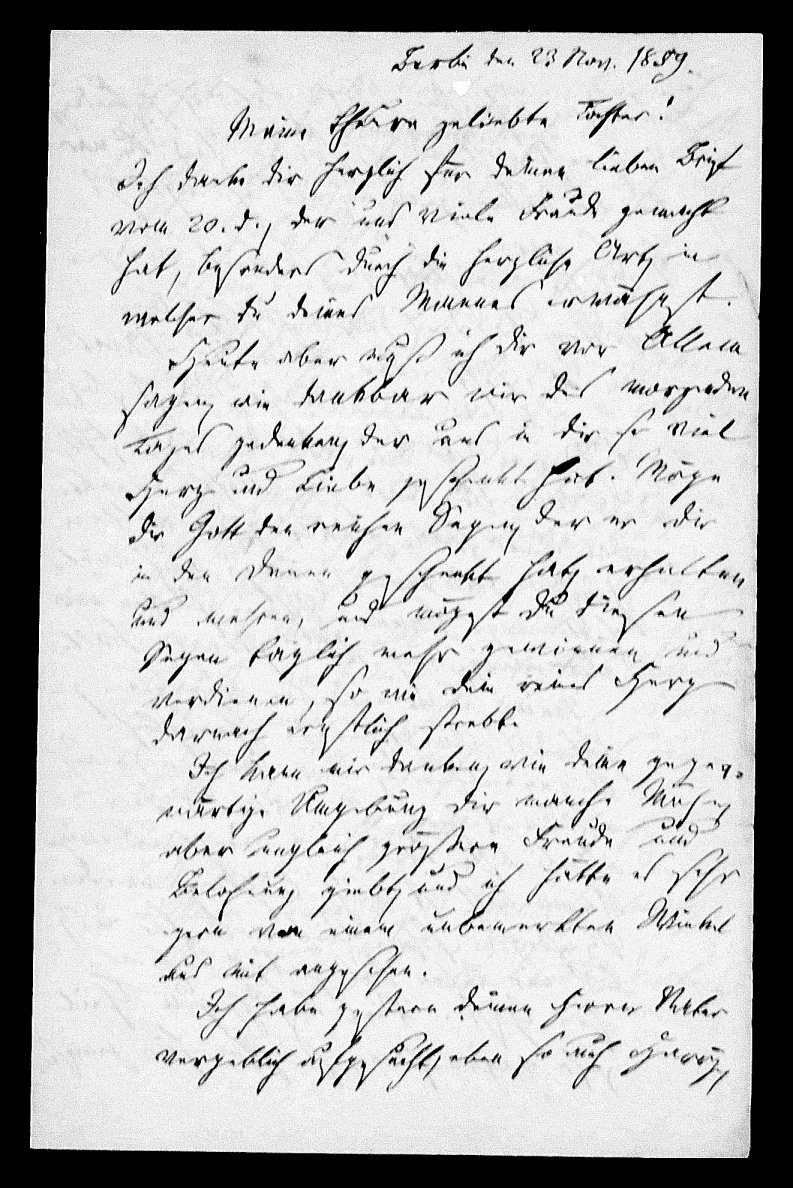 Berlin den 23 Nov. 1889.
Meine theure geliebte Tochter!
Ich danke dir herzlich für deinen lieben Brief
vom 20. d., der uns viele Freude gemacht
hat, besonders durch die herzliche Art, in
welcher du deines Mannes erwähnst.
Heute aber muß ich dir vor Allem
sagen, wie dankbar wir des morgenden
Tages gedenken, der uns in dir so viel
Herz und Liebe geschenkt hat. Möge
dir Gott den reichen Segen, den er dir
in den Deinen geschenkt hat, erhalten
und mehren, und mögest du diesen
Segen täglich mehr gewinnen und
verdienen, so wie dein reines Herz
darnach ernstlich strebt.
Ich kann mir denken, wie deine gegen-
wärtige Umgebung dir manche Mühe,
aber ungleich größere Freude und
Belohnung giebt, und ich hätte es sehr
gern von einem unbemerkten Winkel
aus mit angesehen.
Ich habe gestern deinen Herrn Vater
vergeblich aufgesucht, eben so auch Harry,